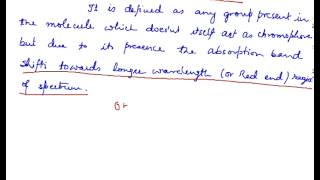 It is defined as any group present in
the molecule which doesn't itself act as chromophore
but due to its presence the absorption band
shifts towards longer wavelength (or Red end) region
of spectrum.
or